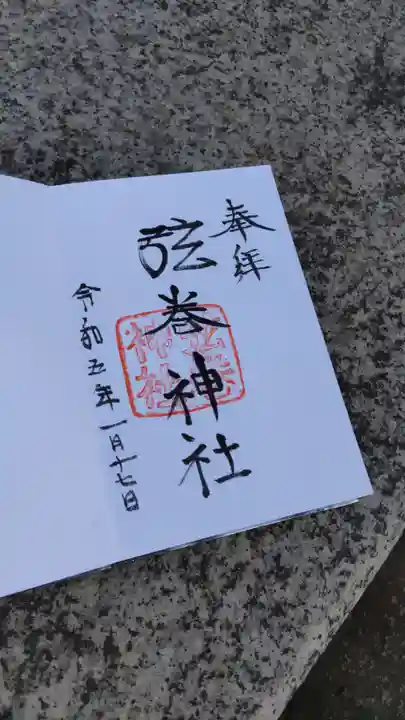 奉拝
弦巻神社
弦巻神社
令和五年一月十七日